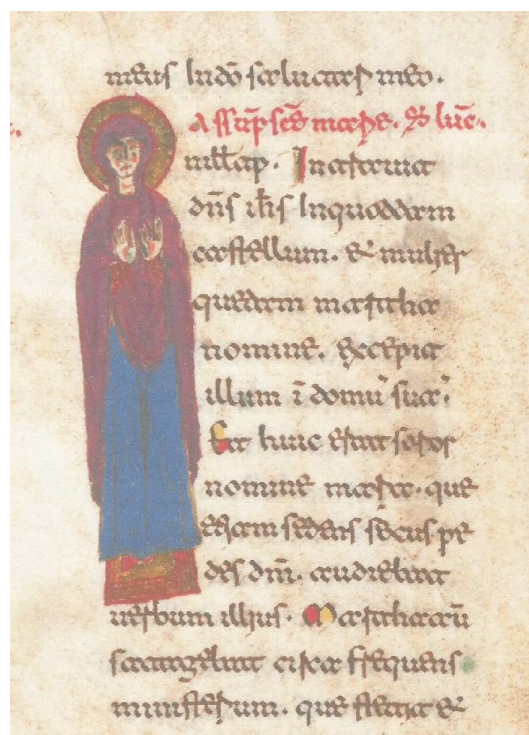 meus ludō salutari meo.
Assūp scē marie. sc̄d lucē.
In illo tp̄. Intravit
dn̄s ih̄s In quoddam
castellum. & mulier
quedam martha
nomine. excepit
illum ī domū suā.
Et huic erat soror
nomine maria. que
etiam sedens secus pe
des dn̄i. audiebat
verbum illius. Martha aū
satagebat circa frequens
ministerium. que stetit &